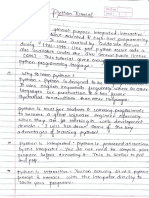 Python Tutorial
general purpose interpreted interactive
object oriented & high-level programming
created by Guido Van Rossum
during 1985-1990. Like perl, Python source code is
also available under the
This tutorial gives enough understanding on
Python programming language.
Why to learn python?
Python is
Python is designed to be highly readable
It uses english keywords frequently where as
other languages use punctuation and it has
fewer syntactical constructions than other
languages.
Python is must for students & working professionals
to become a great software engineer specially
when they are working in web development
domain. I will list down some of the key
advantages of learning python:
Python is interpreted: python is processed at runtime
by the interpreter. You do not need to compile your
program before executing it. This is similar to perl
and PHP.
Python is interactive: You can actually sit at a python
prompt & interact with the interpreter directly to
write your programs.